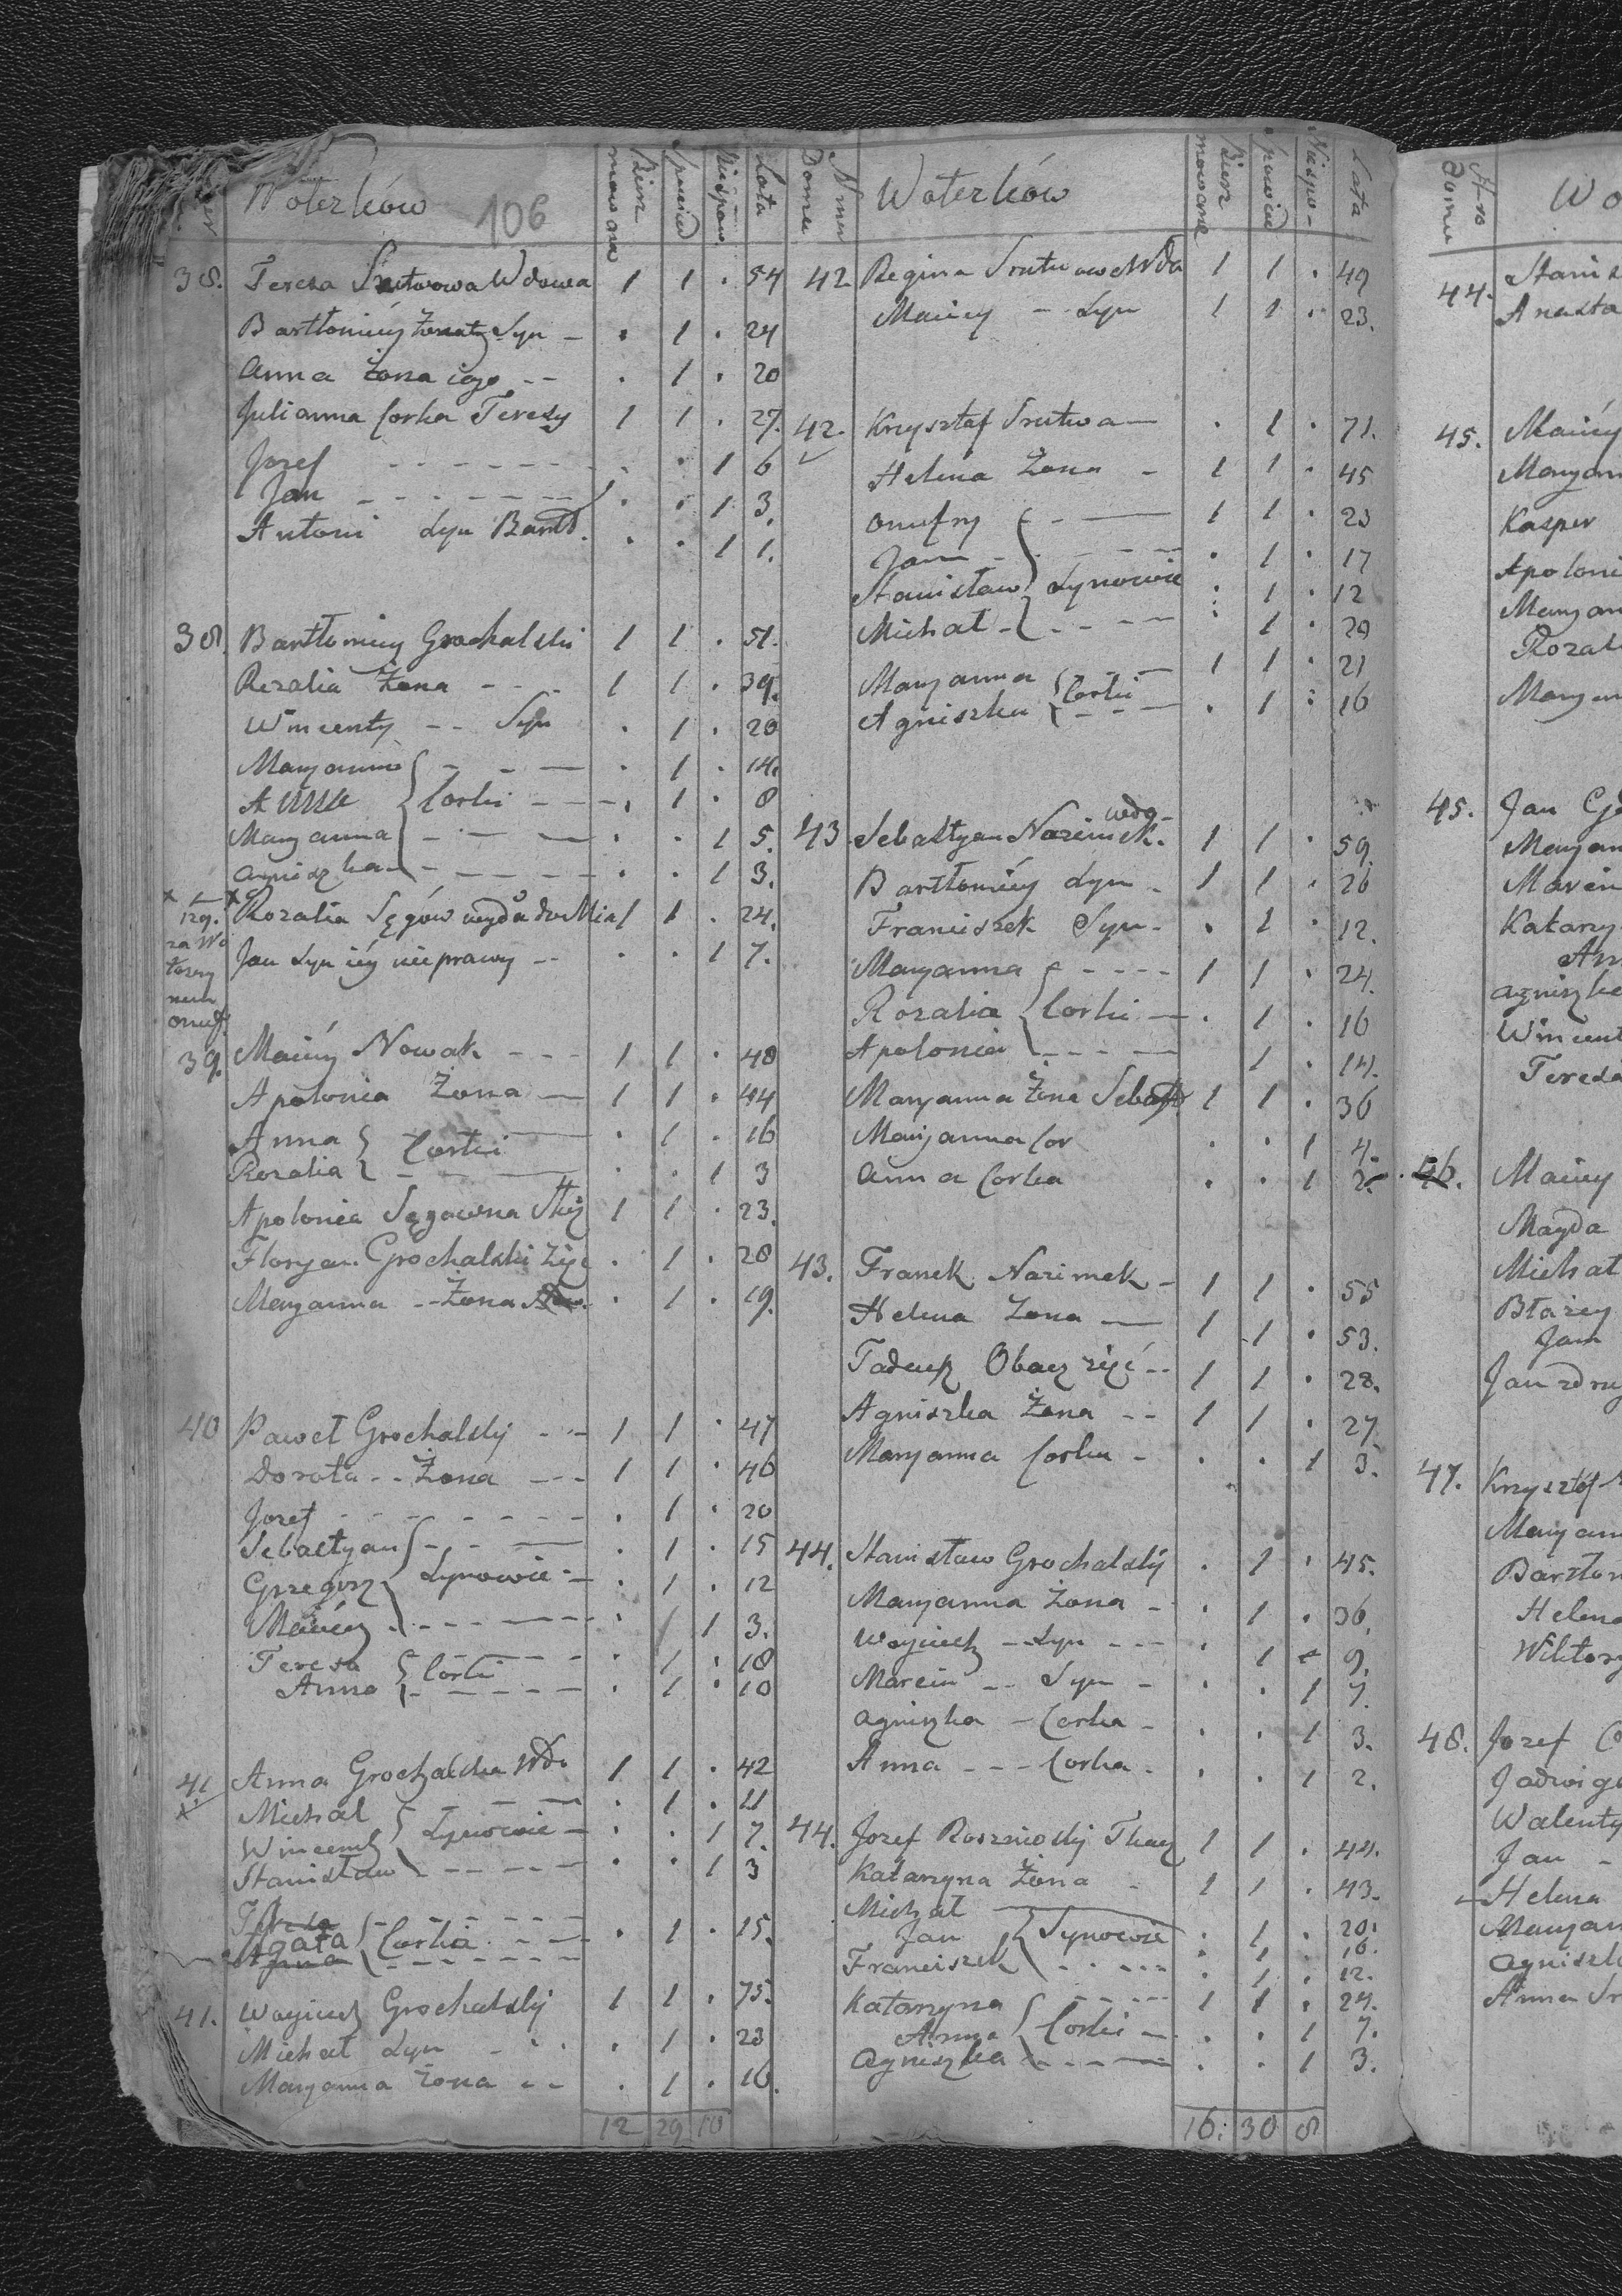 Woterków 106 Bierz mowane Spowied Niespow Lata
38. Teresa Srutwowa Wdowa 1 1 . 54
Bartłomiey Żonaty Syn – . 1 . 24
Anna Żona iego -- . 1 . 20
Julianna Corka Teresy 1 1 . 27.
Jozef - - - - . . 1 6
Jan - - - - . . 1 3.
Antoni Syn Bartł. . . 1 1.
38. Bartłomiey Grochalski 1 1 . 51.
Rozalia Żona - - 1 1 . 39.
Wincenty -- Syn . 1 . 20
Maryanna - - . 1 . 14.
Anna Corki - - . 1 . 8
Maryanna - - . . 1 5.
Agniszka - - . . 1 3.
129. Rozalia Sęgów 1 1 . 24.
za Wo
Jan Syn iey nieprawy -- . . 1 7.
39. Maciey Nowak - - - 1 1 . 48
Apolonia Żona — 1 1 . 44
Anna Corki . 1 . 16
Rozalia - . . 1 3
Apolonia Sęgowna 1 1 . 23.
Floryan Grochalski Zięć . 1 . 28
Maryanna -- Żona . 1 . 19.
40 Paweł Grochalsky - - 1 1 . 47
Dorota -- Żona --- 1 1 . 46
Jozef - - - - . 1 . 20
Sebastyan - - . 1 . 15
Grzegorz Synowie - . 1 . 12
Maciey - - - . / 1 3.
Teresa Corki . 1 . 18
Anna - - - . 1 . 10
41 Anna Grochalska Wd. 1 1 . 42
Michał - - . 1 . 11
Wincenty Synowie – . . 1 7.
Stanisław - - - . . 1 3
Teresa - - -
Agata Corka - - . 1 . 15.
Anna - - -
41. Woyciech Grochalsky 1 1 . 75.
Michał Syn - . . 1 . 23
Maryanna Żona -- . 1 . 16.
12 29 10
Nmer Domu Woterków Bierz mowane Spowied Niespo- Lata
42. Regina Srutwowa Wda 1 1 . 49
Maciey -- Syn 1 1 . 23.
42. Krysztof Srutwa — . 1 . 71.
Helena Żona - 1 1 . 45
Onufry - — 1 1 . 23
Jan - - - - . 1 . 17
Stanisław Synowie . 1 . 12
Michał - - - - . 1 . 20
Maryanna Corki 1 1 . 21
Agniszka - - - . 1 . 16
wdo-
43. Sebastyan Nazimek. 1 1 . 59.
Bartłomiey Syn - 1 1 . 26
Franciszek Syn - . 1 . 12.
Maryanna - - - - 1 1 . 24.
Rozalia Corki — . 1 . 16
Apolonia - - - 1 . 14.
Maryanna Żona Sebast 1 1 . 36
Maryanna Cor . . 1 4.
Anna Corka . . 1 2.
43. Franek Nazimek - 1 1 . 55
Helena Żona — 1 1 . 53.
Tadeusz Obacz zięć -- 1 1 . 28.
Agniszka Żona -- 1 1 . 27
Maryanna Corka - . . 1 3.
44. Stanisław Grochalsky . 1 . 45.
Maryanna Żona - . 1 . 36.
Woyciech - Syn --- . 1 9.
Marcin -- Syn - . . 1 7.
Agniszka - Corka - . . 1 3.
Anna --- Corka - . . 1 2.
44. Jozef Tkacz 1 1 . 44.
Katarzyna Żona - 1 1 . 43.
Michał — . 1 . 20.
Jan Synowie . 1 . 16.
Franciszek - - - - . 1 . 12.
Katarzyna - - - 1 1 . 24.
Anna Corki - . . 1 7.
Agniszka - - - . . 1 3.
16. 30 8
Nro domu Wo
44. Stanis
Anasta
45. Maciey
Maryan
Kasper
Apoloni
Maryan
Rozal
Maryan
45. Jan
Maryan
Marcin
Katarzy
An
Agniszka
Wincent
Teresa
46. Maciey
Magda
Michał
Błażey
Jan
Jan
47. Krysztof
Maryan
Bartłom
Helena
Wiktory
48. Jozef
Jadwiga
Walenty
Jan -
Helena
Maryan
Agniszk
Anna